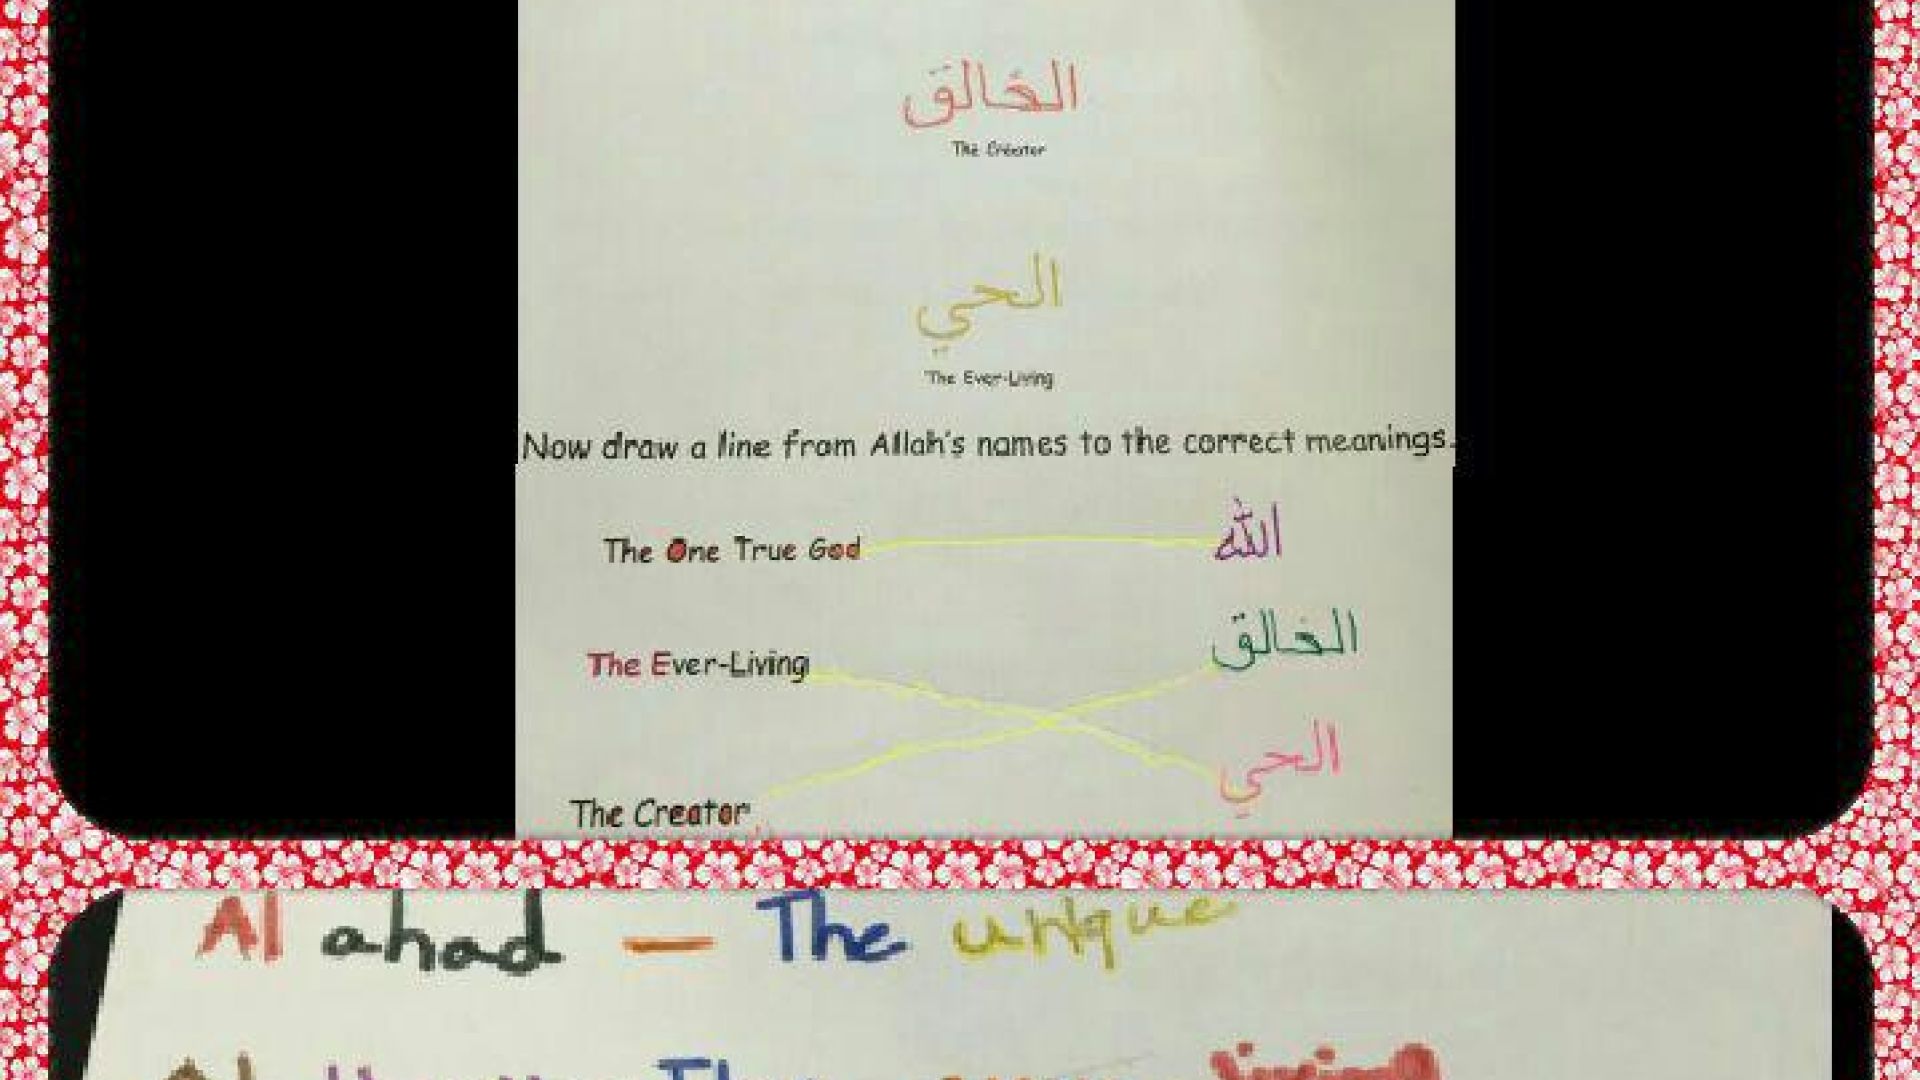 الخالق
The Creator
الحي
The Ever-Living
Now draw a line from Allah's names to the correct meanings.
The One True God الله
The Ever-Living الخالق
The Creator الحي
Al ahad — The unique